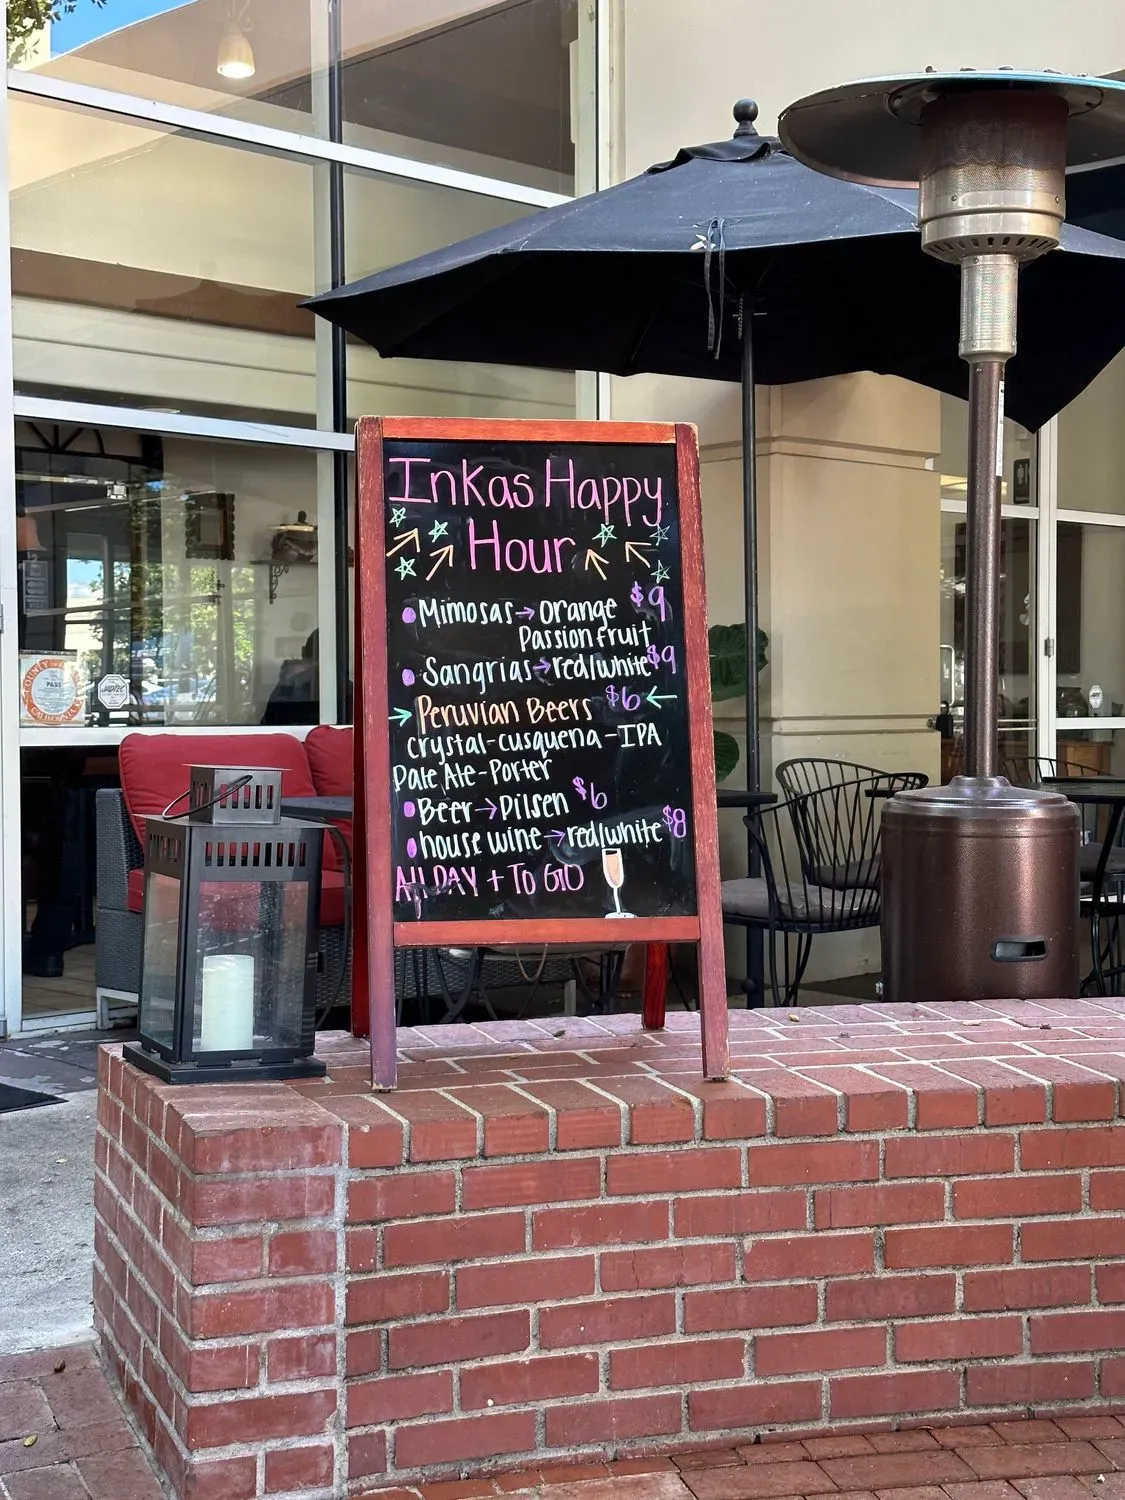 Inkas Happy
Hour
• Mimosas → orange $9
Passion fruit
• Sangrias → red/white $9
→ Peruvian Beers $6 ←
crystal - cusquena - IPA
Pale Ale - Porter
• Beer → Pilsen $6
• house wine → red/white $8
All DAY + To GO
COUNTY
PASS